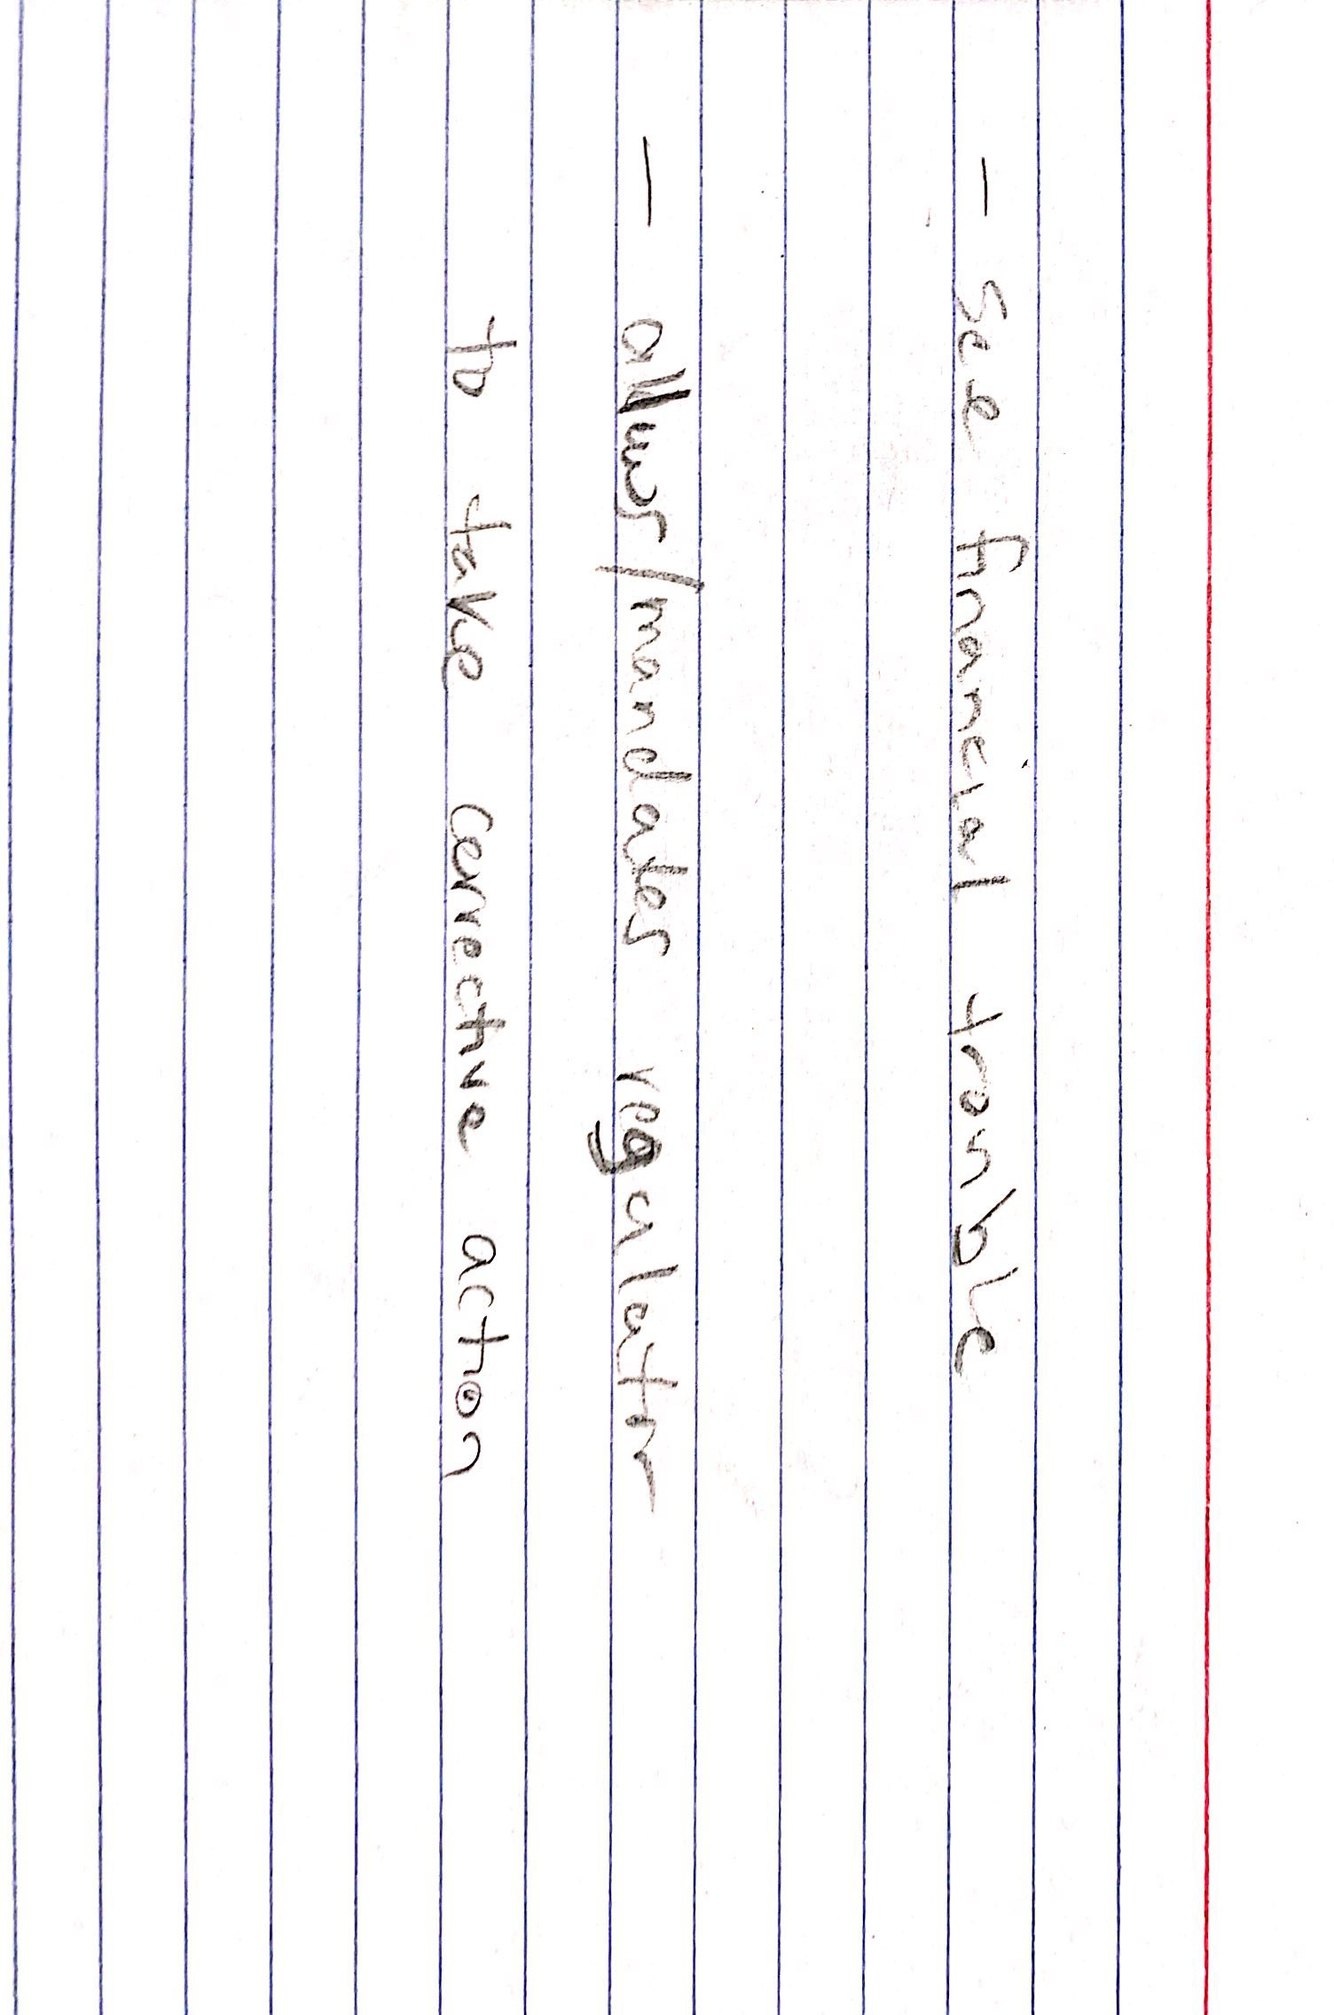 - see financial trouble
- allows/mandates regulator
to take corrective action